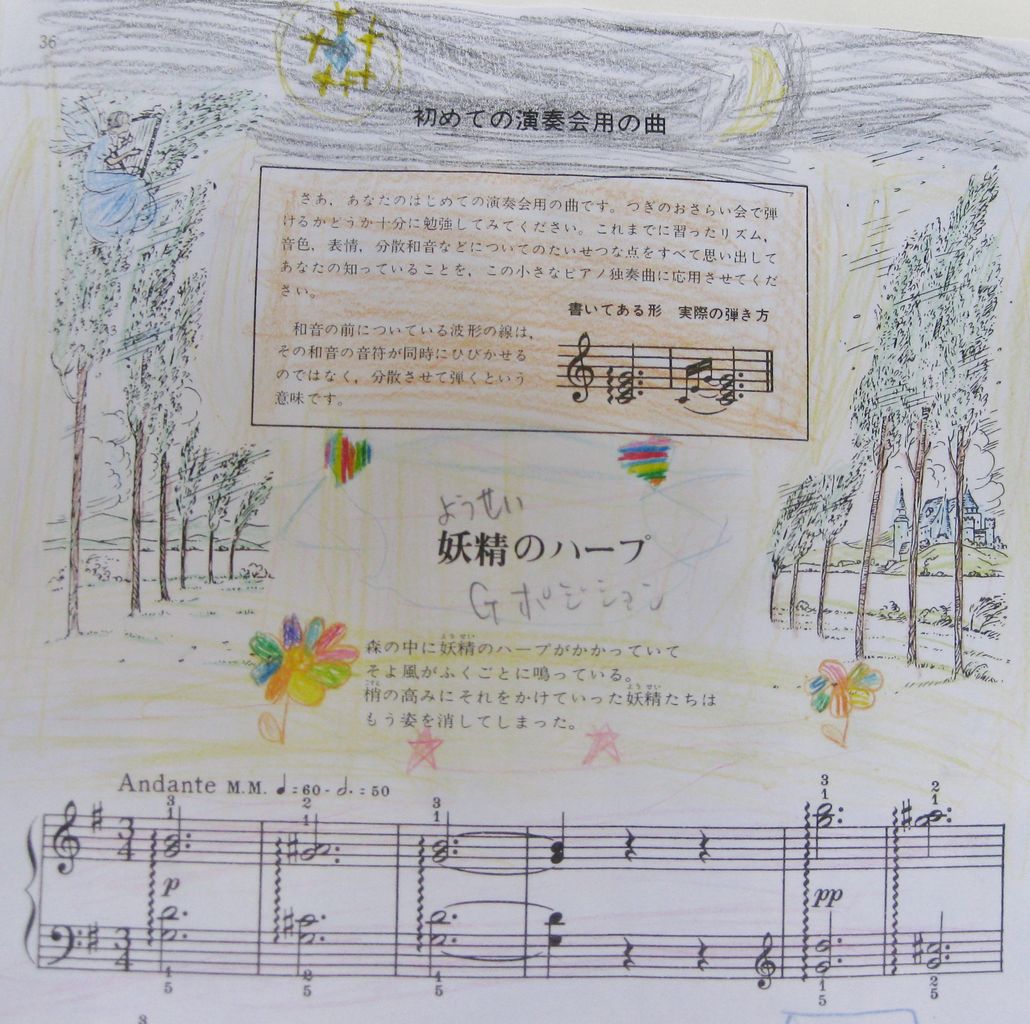 36
初めての演奏会用の曲
さあ，あなたのはじめての演奏会用の曲です。つぎのおさらい会で弾
けるかどうか十分に勉強してみてください。これまでに習ったリズム，
音色，表情，分散和音などについてのたいせつな点をすべて思い出して
あなたの知っていることを，この小さなピアノ独奏曲に応用させてくだ
さい。
書いてある形 実際の弾き方
和音の前についている波形の線は，
その和音の音符が同時にひびかせる
のではなく，分散させて弾くという
意味です。
ようせい
妖精のハープ
Gポジション
森の中に妖精のハープがかかっていて
ようせい
そよ風がふくごとに鳴っている。
こずえ
梢の高みにそれをかけていった妖精たちは
ようせい
もう姿を消してしまった。
Andante M.M. ♩=60 - 𝅗𝅥. =50
3 2 3 3 2
1 1 1 1 1
3 4
p pp
3 4
1 2 1 1 2
5 5 5 5 5
8